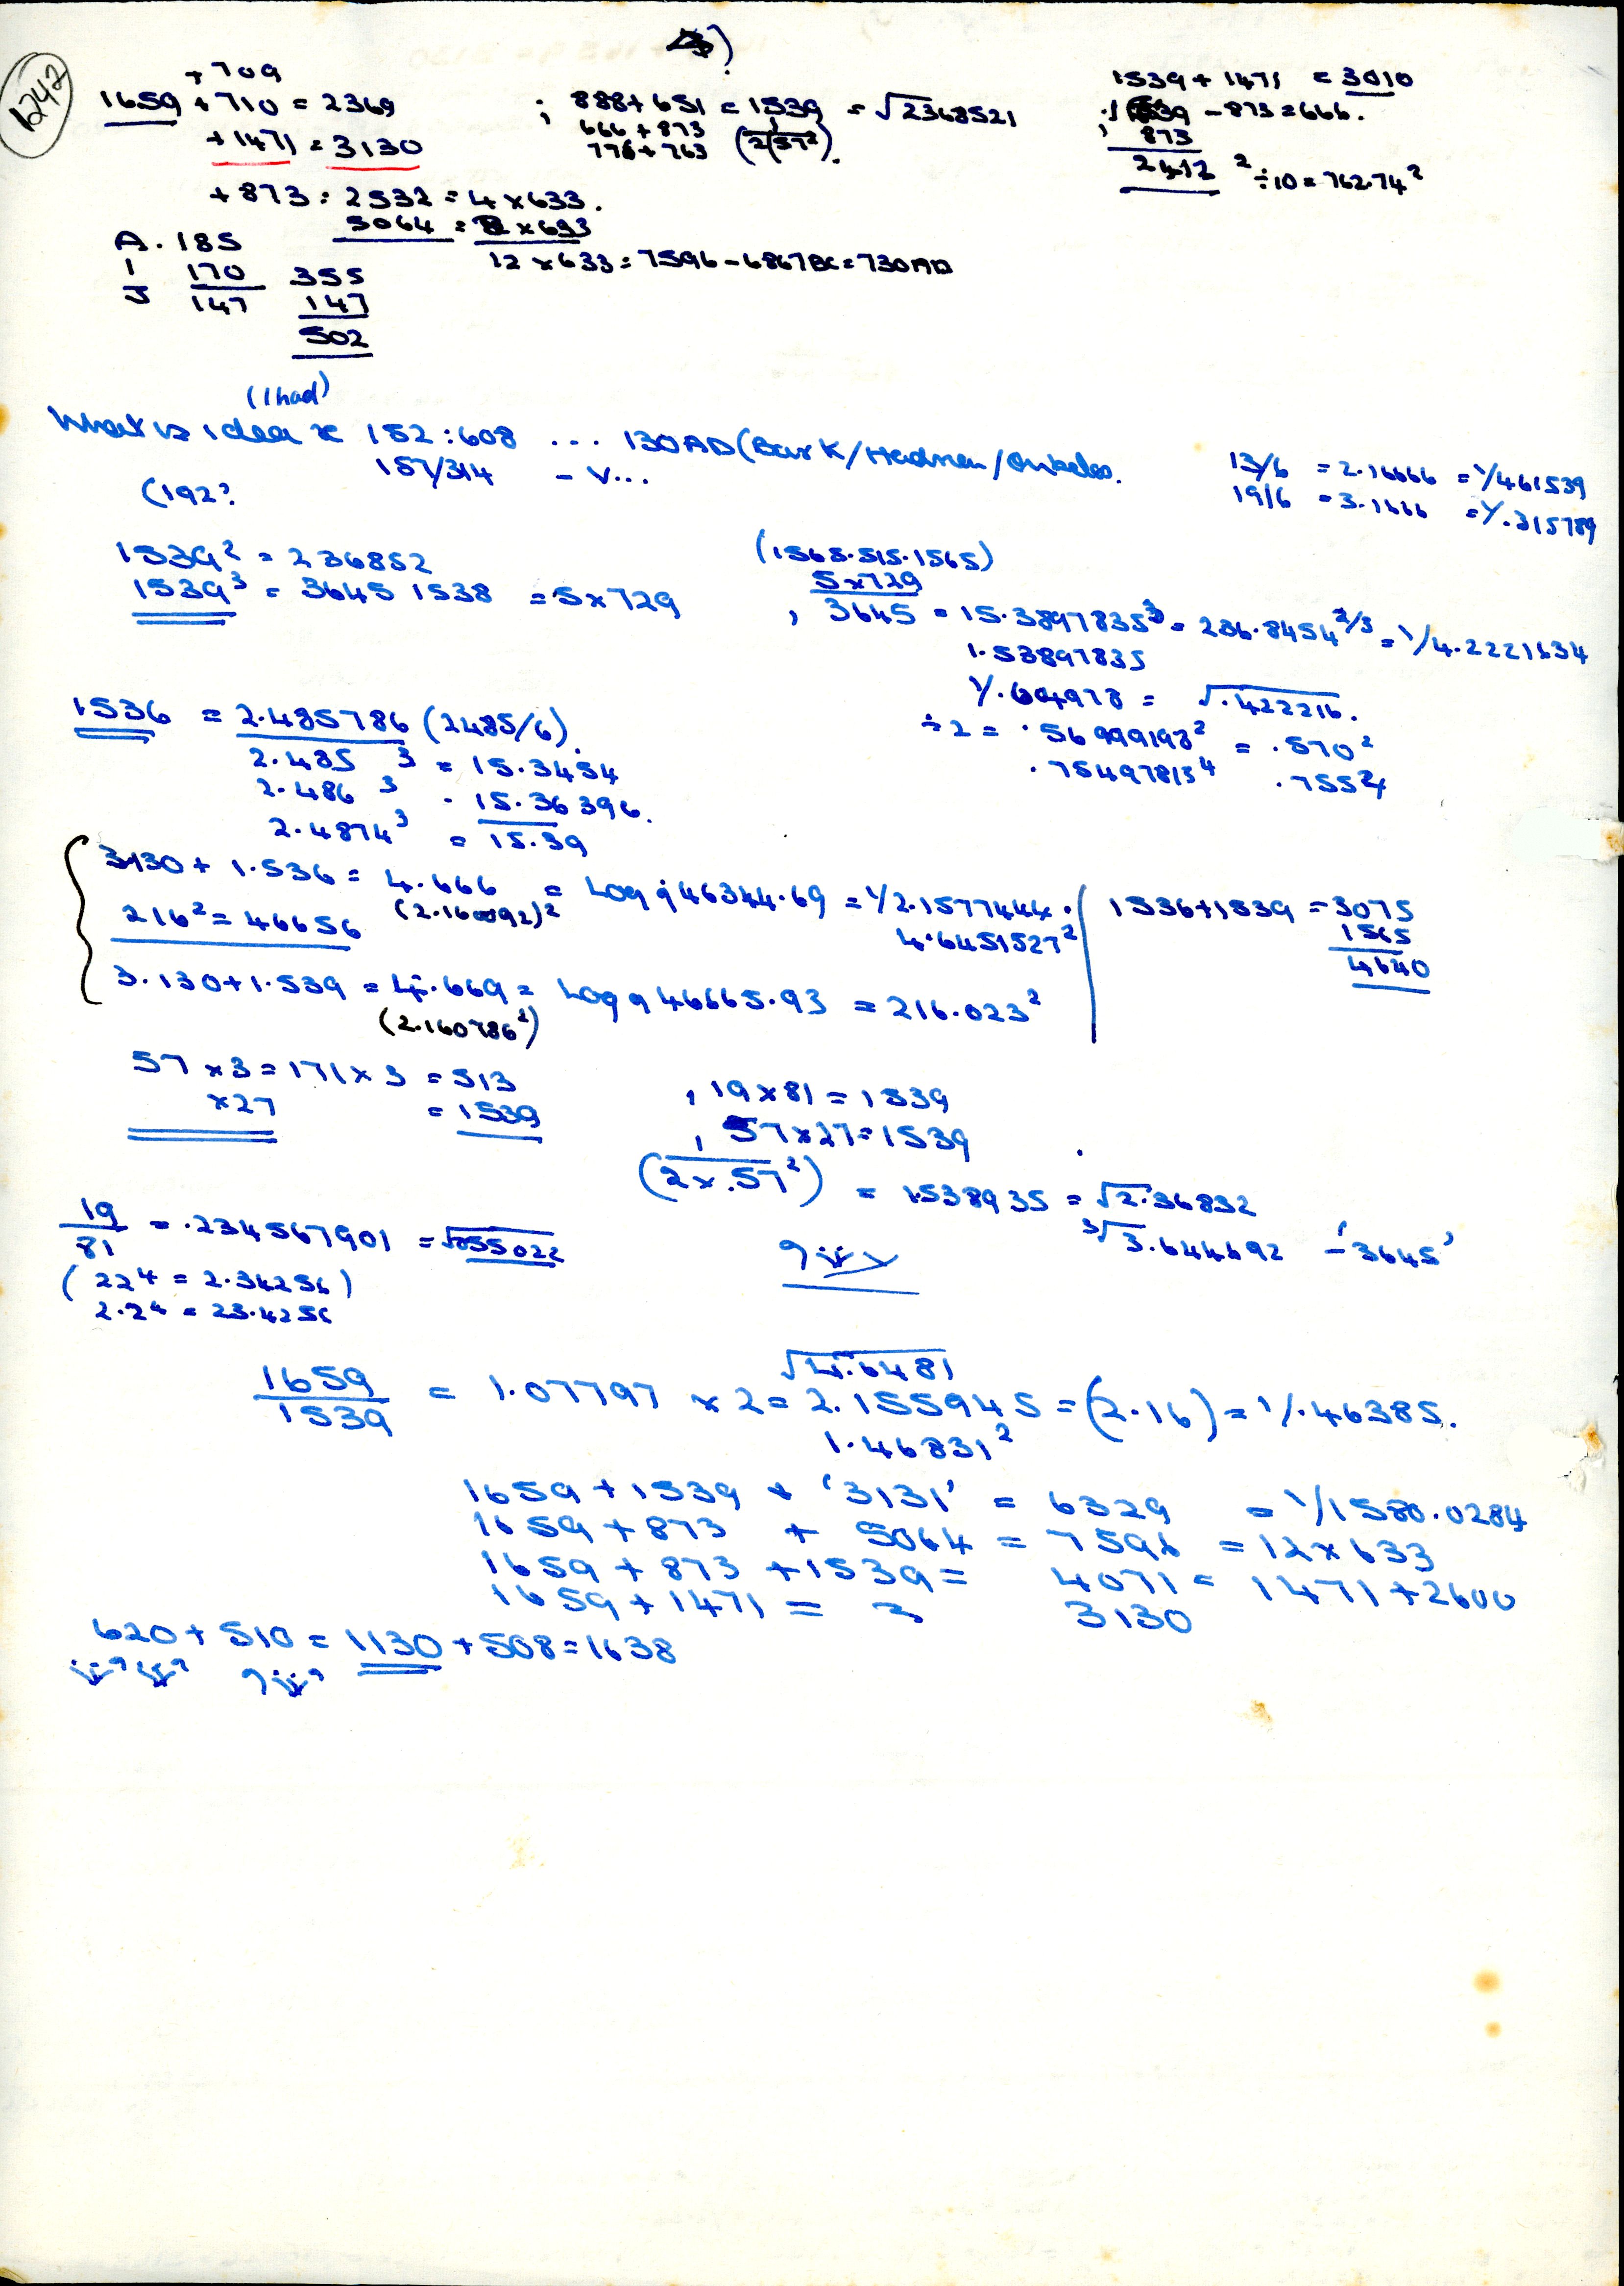 1242
+ 709
1659 + 710 = 2369
+ 1471 = 3130
+ 873 = 2532 = 4 x 633.
5064 = 8 x 633
12 x 633 = 7596 - 6867BC = 730AD
; 888 + 651 = 1539 = √2368521
666 + 873
776 + 763
1539 + 1471 = 3010
1539 - 873 = 666.
873
2412 ² ÷10 = 762.74²
A. 185
I 170 355
J 147 147
502
(I had)
What is idea 152 : 608 ... 130AD (Bar K/Hadrian/Onkelos.
157/314 - V...
(192?
13/6 = 2.16666 = 1/461539
19/6 = 3.1666 = 1/.315789
1539² = 236852
1539³ = 3645 1538 = 5 x 729
(1565.515.1565)
5 x 729
, 3645 = 15.3897835³ = 236.8454^2/3 = 1/4.2221634
1.53897835
1/.604978 = √.422216.
÷ 2 = .56999193² = .570²
.75497813⁴ .755⁴
1536 = 2.485786 (2485/6).
2.485 ³ = 15.3454
2.486 ³ = 15.36396.
2.4874³ = 15.39
3130 + 1.536 = 4.666 = Log 46344.69 = 1/2.1577444.
216² = 46656 (2.160092)² 4.6451527²
3.130 + 1.539 = 4.669 = Log 46665.93 = 216.023²
(2.160786²)
1536 + 1539 = 3075
1565
4640
57 x 3 = 171 x 3 = 513
x 27 = 1539
, 19 x 81 = 1539
, 57 x 27 = 1539
(2 x .57²) = 1.538935 = √2.36832
³√3.644692 - '3645'
19/81 = .234567901 = √055022
(22⁴ = 2.34256)
2.2⁴ = 23.4256
√4.6481
1659/1539 = 1.07797 x 2 = 2.155945 = (2.16) = 1/.46385.
1.46831²
1659 + 1539 + '3131' = 6329 = 1/1580.0284
1659 + 873 + 5064 = 7596 = 12 x 633
1659 + 873 + 1539 = 4071 = 1471 + 2600
1659 + 1471 = 3130
620 + 510 = 1130 + 508 = 1638